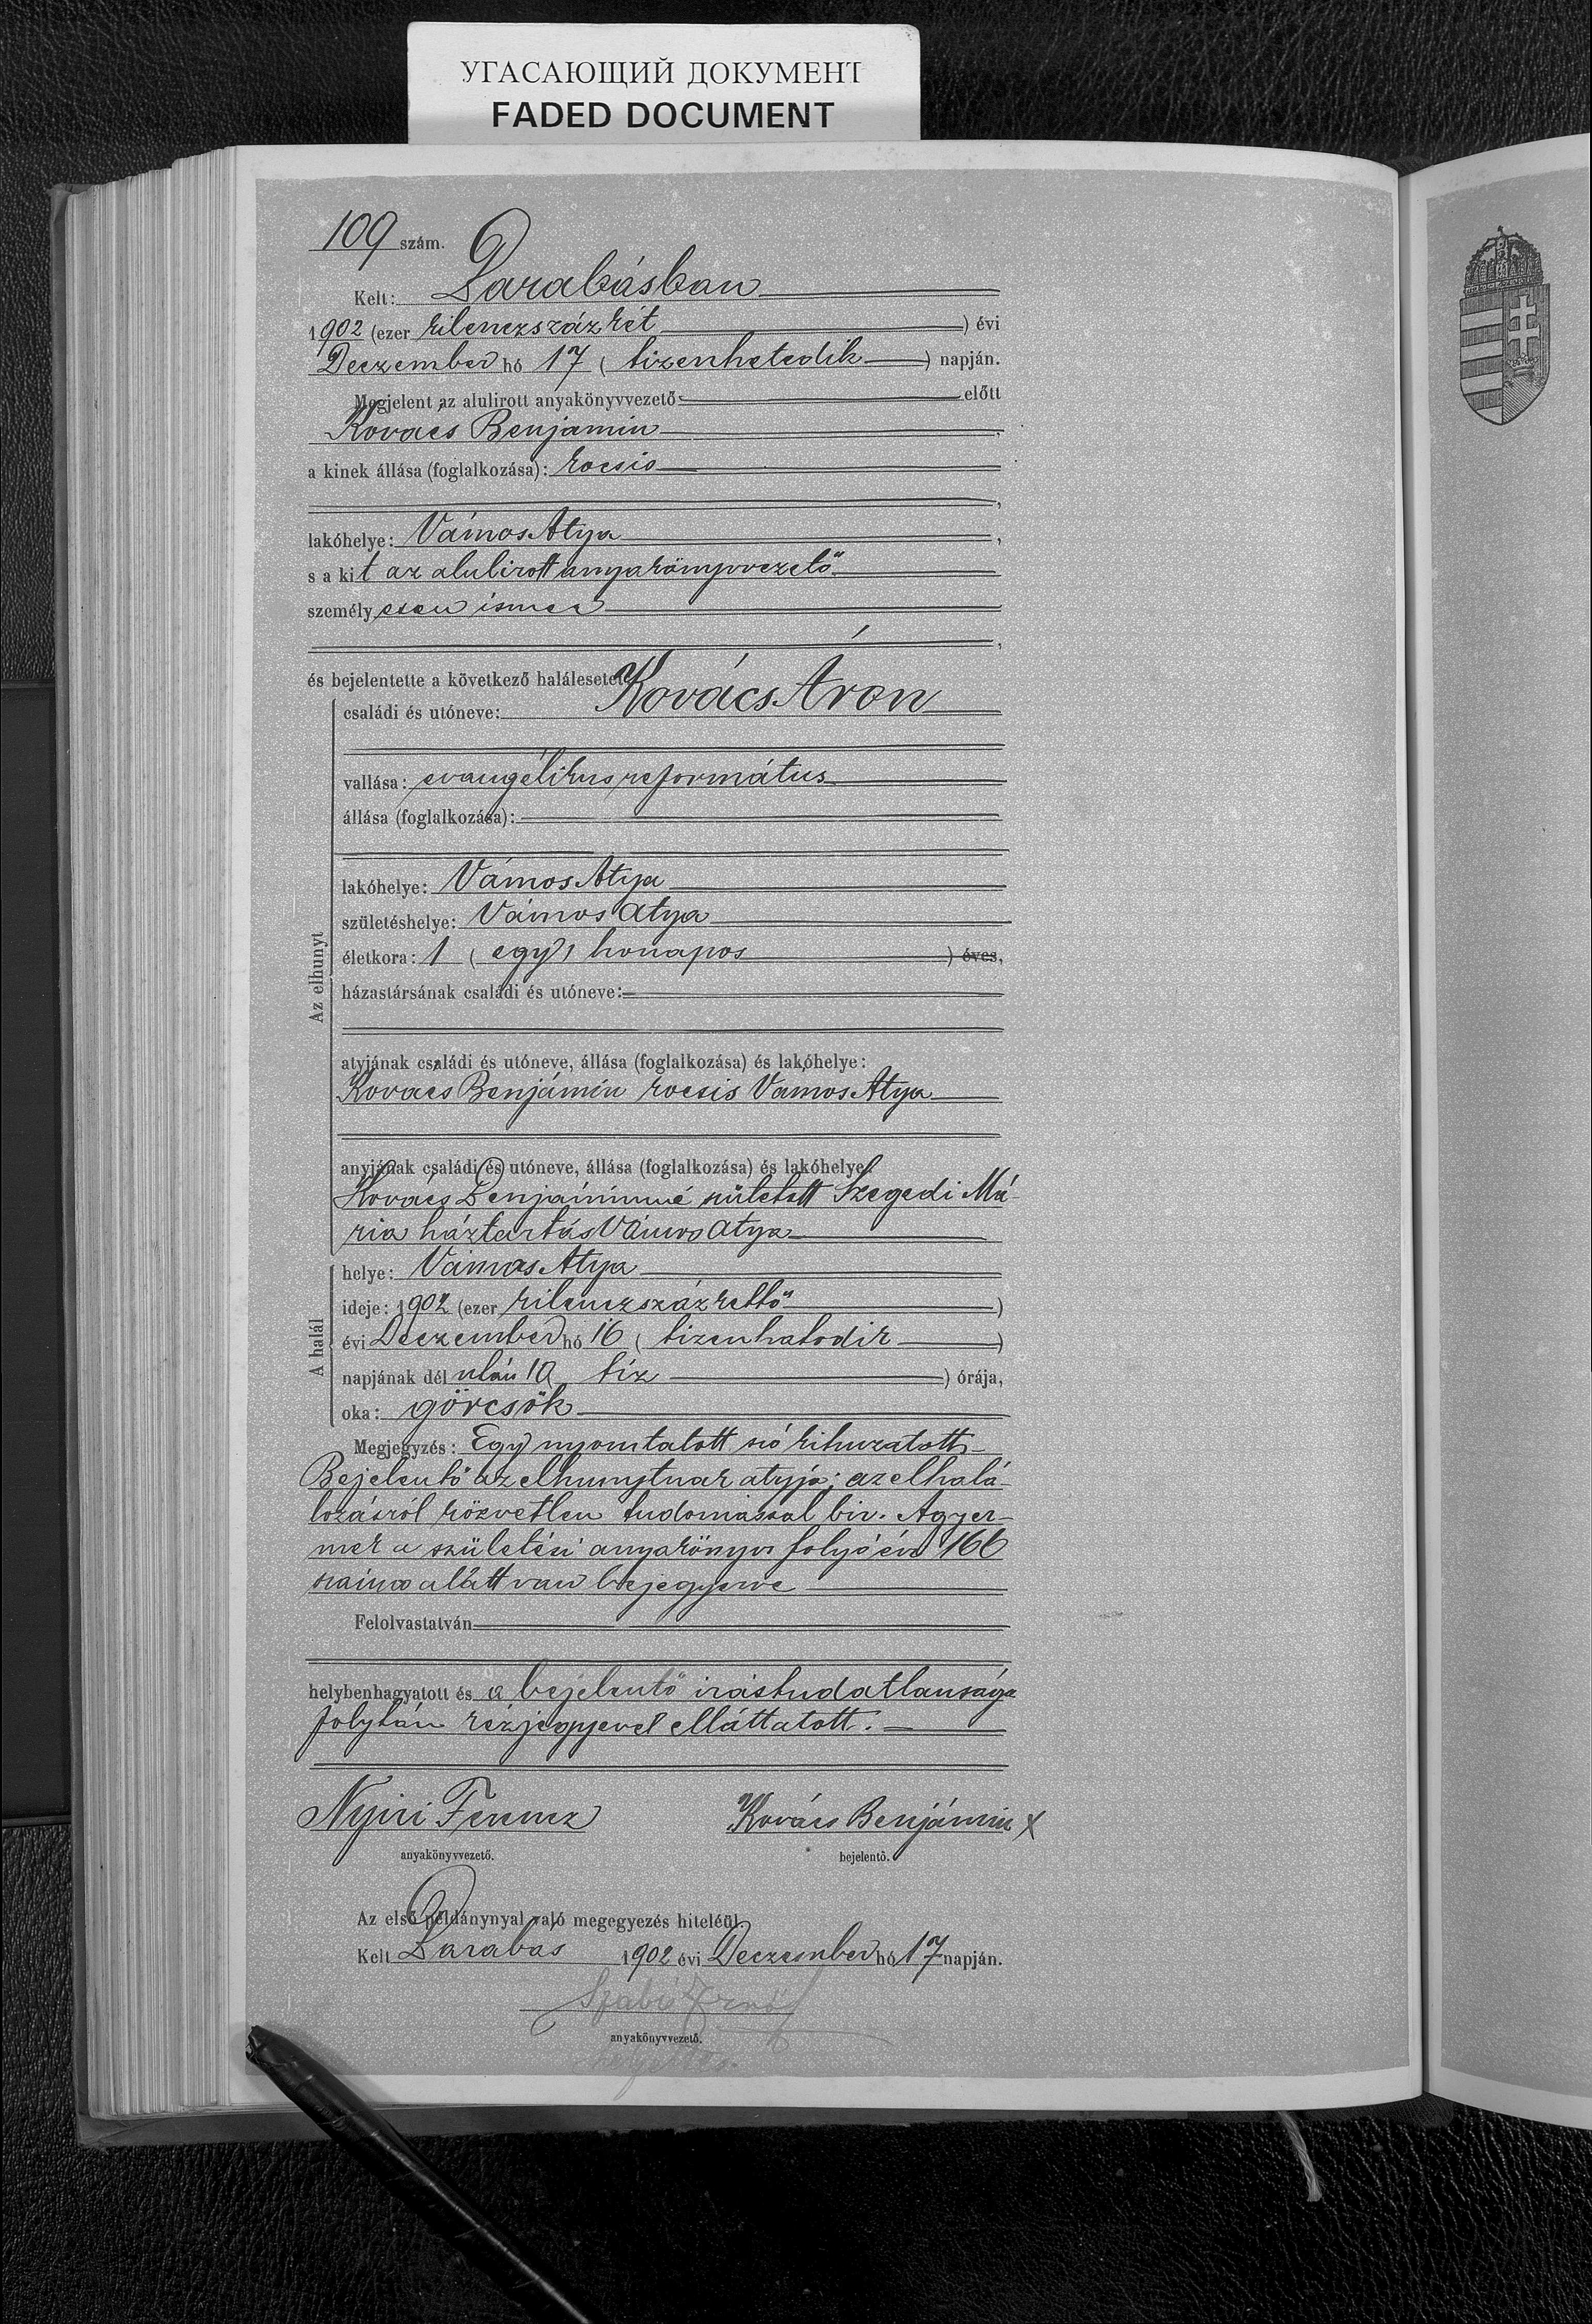 УГАСАЮЩИЙ ДОКУМЕНТ
FADED DOCUMENT
109 szám.
Kelt: Barabásban
1902 (ezer kilenczszázkét ) évi
Deczember hó 17 ( tizenhetedik ) napján.
Megjelent az alulirott anyakönyvvezető előtt
Kovács Benjamin
a kinek állása (foglalkozása): kocsis
lakóhelye: Vámos Atya
s a kit az alulirott anyakönyvvezető
személyesen ismer
és bejelentette a következő halálesetet:
családi és utóneve: Kovács Áron
vallása: evangélikus református
állása (foglalkozása):
lakóhelye: Vámos Atya
születéshelye: Vámos Atya
Az elhunyt
életkora: 1 ( egy) honapos ) éves,
házastársának családi és utóneve:
atyjának családi és utóneve, állása (foglalkozása) és lakóhelye:
Kovács Benjámin kocsis Vámos Atya
anyjának családi és utóneve, állása (foglalkozása) és lakóhelye:
Kovács Benjáminné született Szegedi Má-
ria háztartás Vámos Atya
helye: Vámos Atya
ideje: 1902 (ezer kilenczszázkettő )
A halál
évi Deczember hó 16 ( tizenhatodik )
napjának dél után 10 tíz ) órája,
oka: görcsök
Megjegyzés: Egy nyomtatott szó kihuzatott
Bejelentő az elhunytnak atyja; az elhalá-
lozásról közvetlen tudomással bir. A gyer-
mek a születési anyakönyv folyó évi 166
száma alatt van bejegyezve
Felolvastatván
helybenhagyatott és a bejelentő irástudatlansága
folytán kézjegyével elláttatott.
Nyiri Ferencz
Kovács Benjámin x
anyakönyvvezető.
bejelentő.
Az első példánynyal való megegyezés hiteléül
Kelt Barabás 1902 évi Deczember hó 17 napján.
Szabó Ernő
anyakönyvvezető.
helyettes.